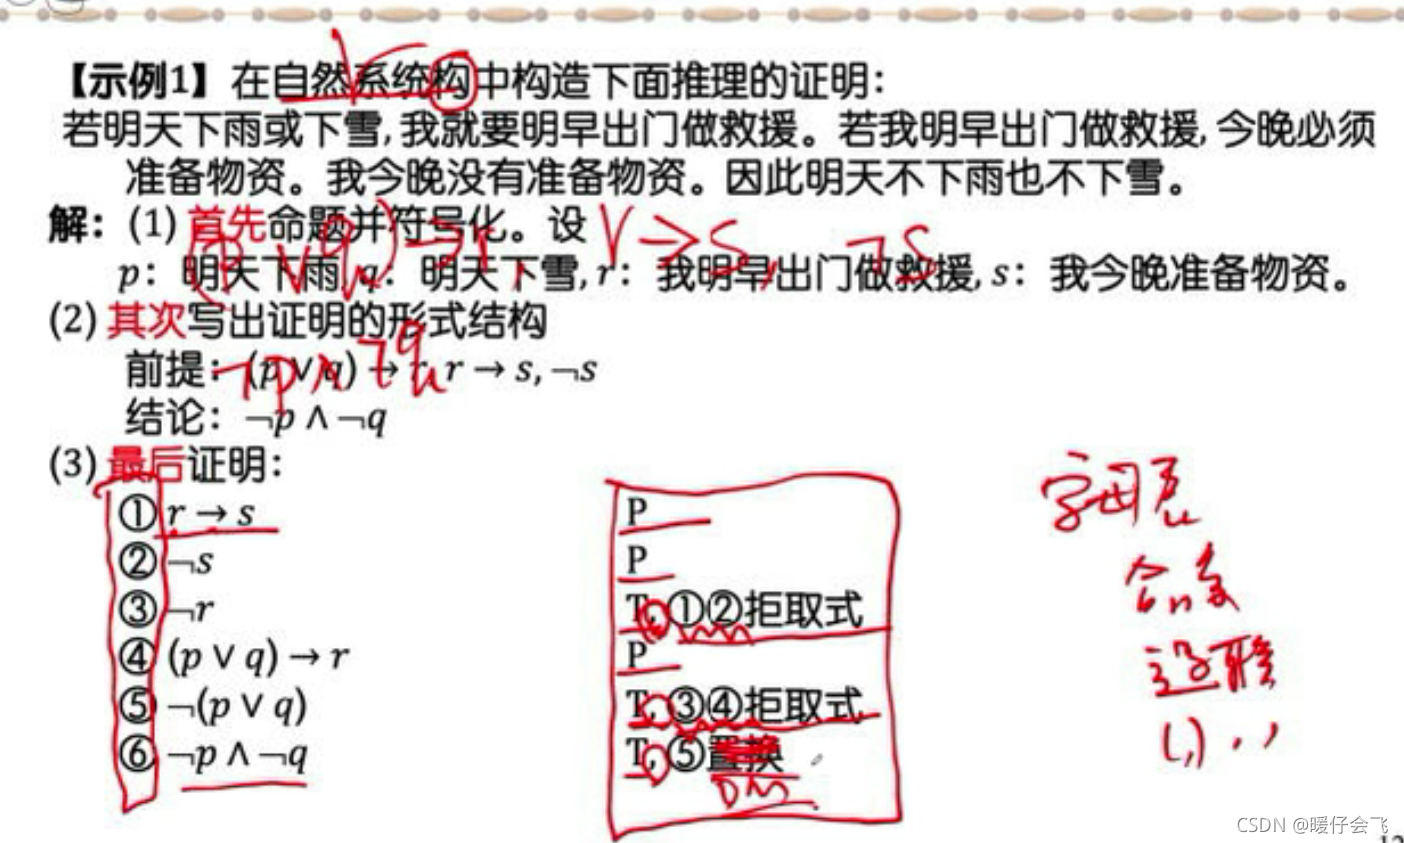 【示例1】在自然系统构中构造下面推理的证明：
若明天下雨或下雪,我就要明早出门做救援。若我明早出门做救援,今晚必须
准备物资。我今晚没有准备物资。因此明天不下雨也不下雪。
解：(1) 首先命题并符号化。设
(p∨q)→r, r→s, ¬s
p：明天下雨, q：明天下雪, r：我明早出门做救援, s：我今晚准备物资。
(2) 其次写出证明的形式结构
前提：(p ∨ q) → r, r → s, ¬s
¬p∧¬q
结论：¬p ∧ ¬q
(3) 最后证明：
① r → s P
② ¬s P
③ ¬r T, ①②拒取式
④ (p ∨ q) → r P
⑤ ¬(p ∨ q) T, ③④拒取式
⑥ ¬p ∧ ¬q T, ⑤置换
DM
字母表
(,)
CSDN @暖仔会飞
12